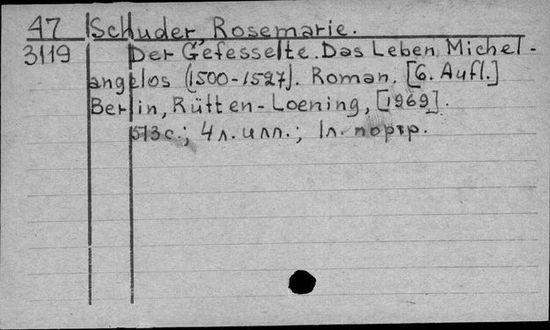 47 Schuder, Rosemarie.
3119 Der Gefesselte. Das Leben Michel-
angelos (1500-1527). Roman. [6. Aufl.]
Berlin, Rütten-Loening, [1969].
573с.; 4 л. илл.; 1л. портр.